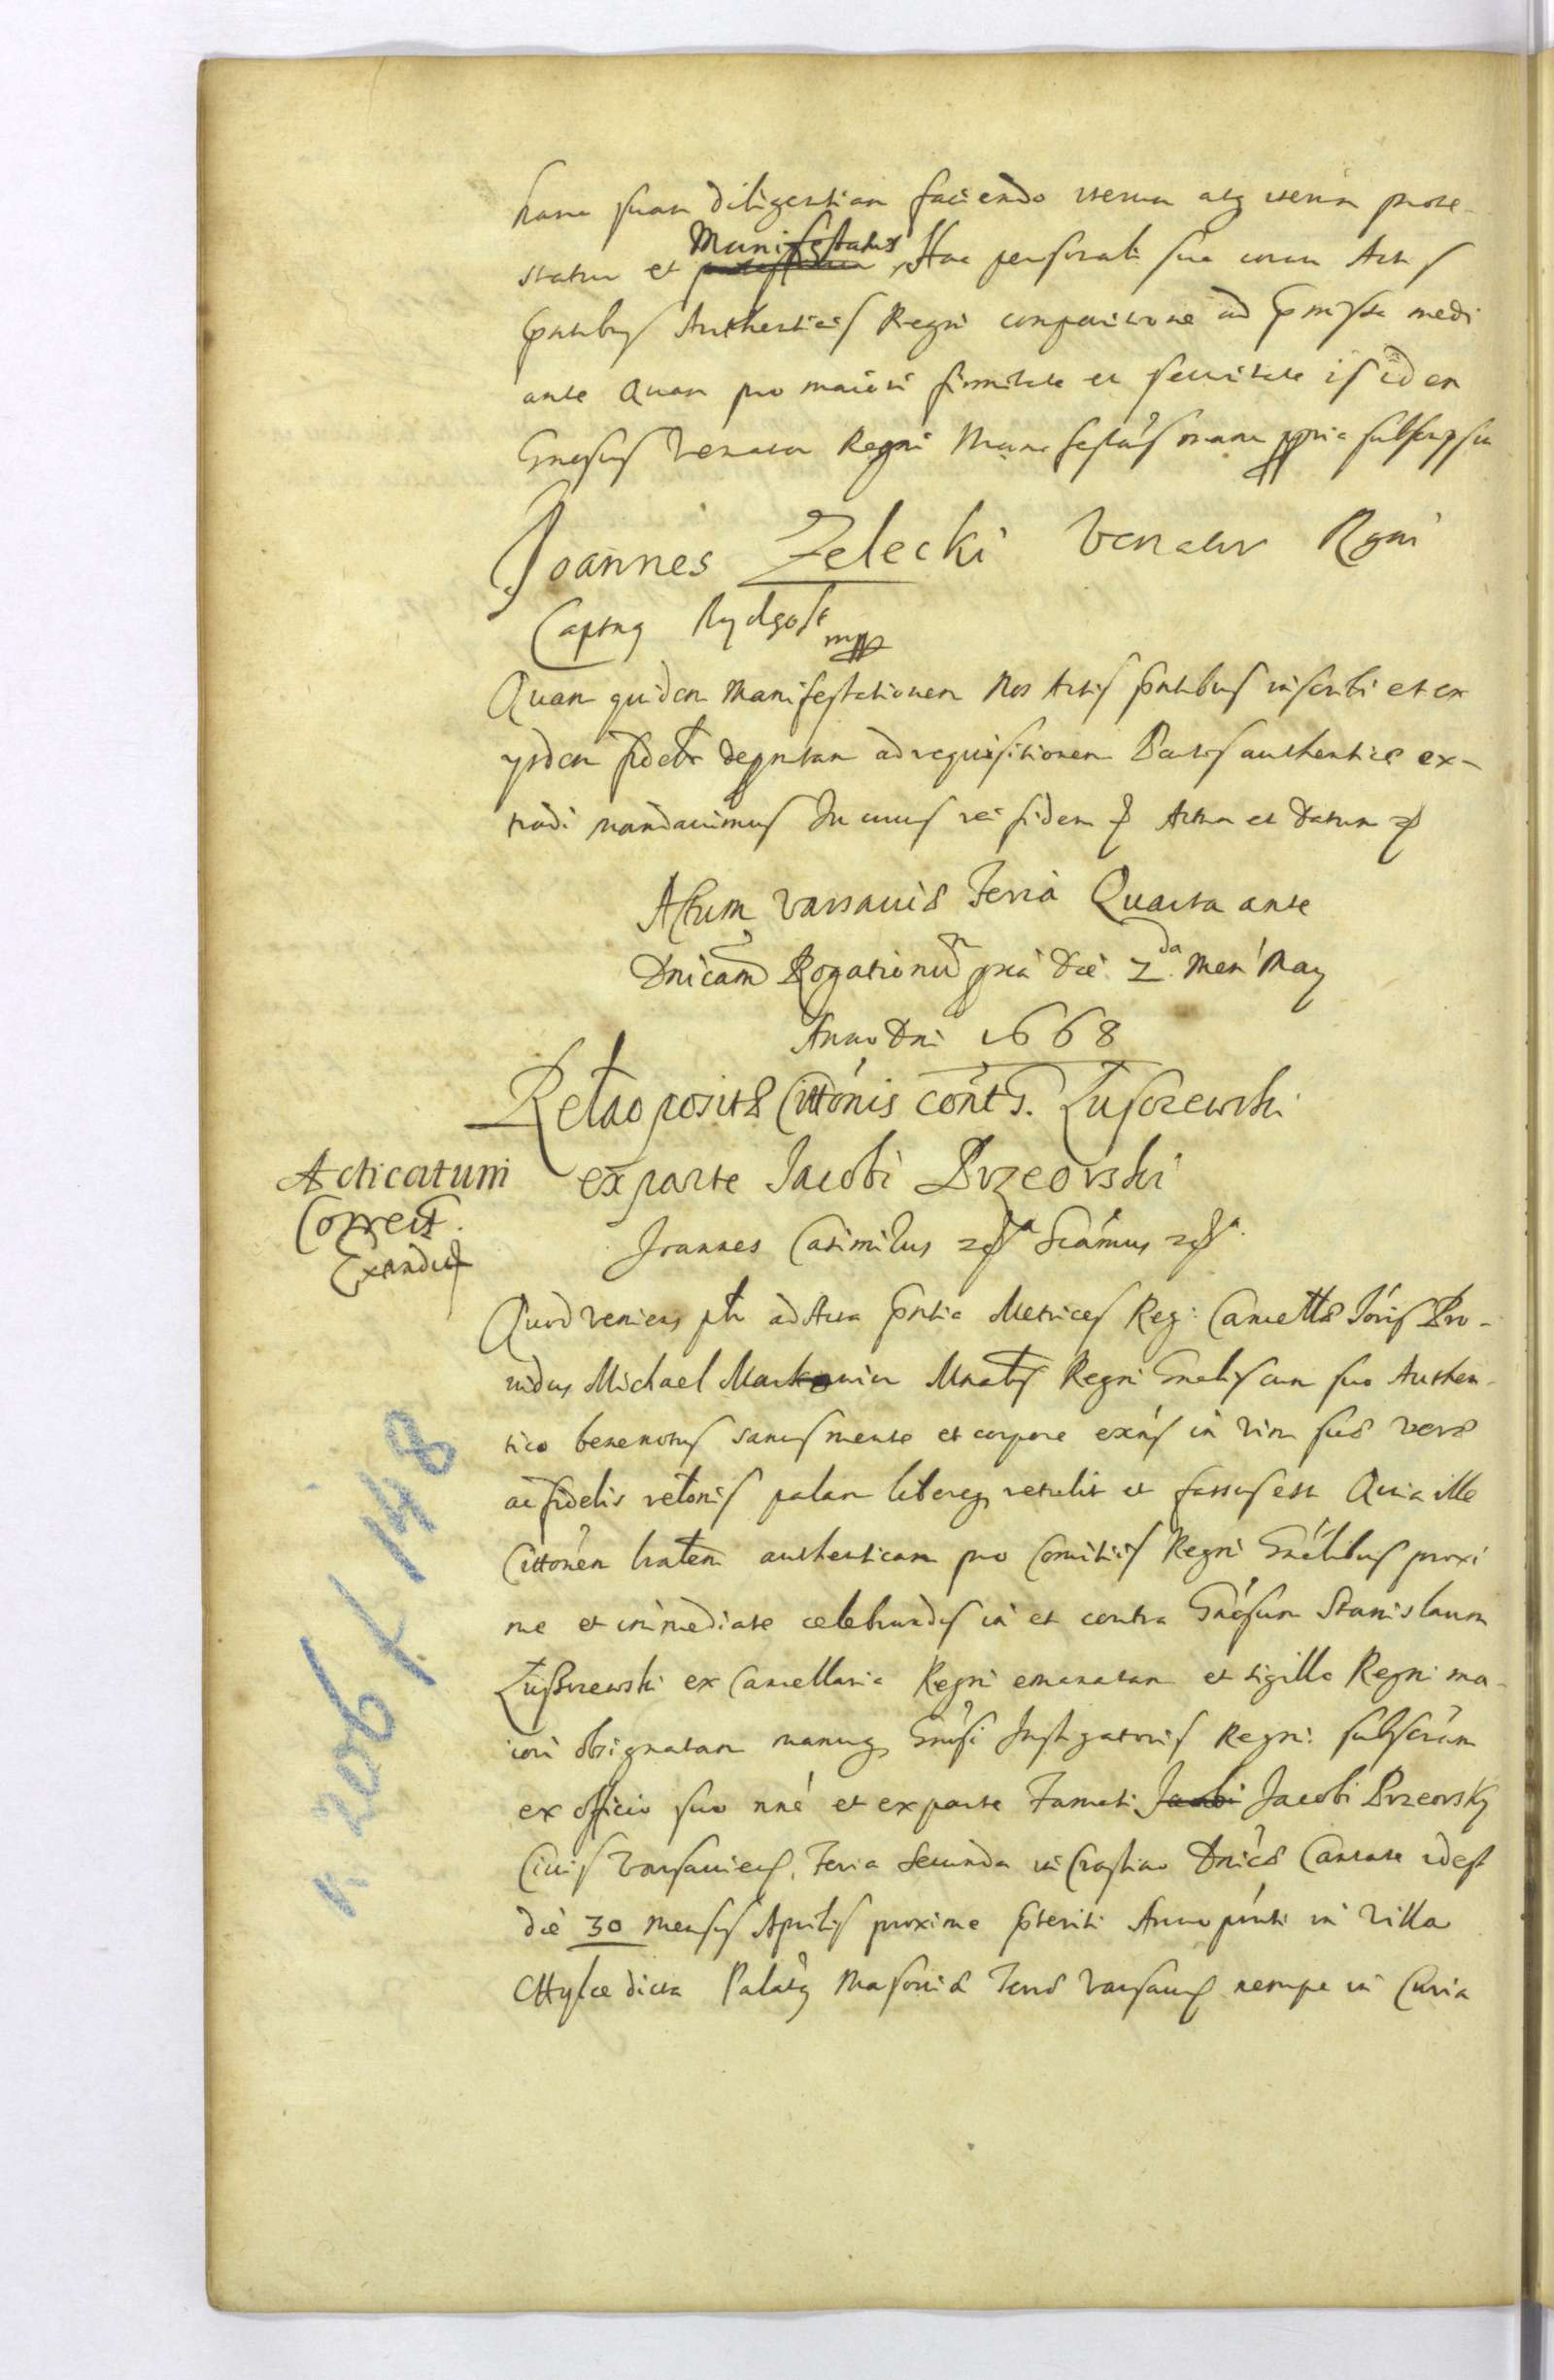 hanc suam diligentiam faciendo iterum atq iterum prote-
statur et Manifestatur, Hac personali sua coram Actis
pntibus Authenticis Regni comparitione ad pmissa medi
ante Quam pro maiori firmitate et securitate is idem
Gnosus Venator Regni Manifestans manu ppria subscripsit
Joannes Zelecki Venator Regni
Captnq Bydgost mpp
Quam quidem Manifestationem Nos Actis pntibus inscribi et ex
ysdem fidelr depntam ad requisitionem Partis authentice ex-
tradi mandavimus In cuius rei fidem Actum et Datum
Actum Varsaviæ Feria Quarta ante
Dnicam Rogationu pxa Die 2da Men May
Anno Dni 1668
Relao positæ Cittonis cont G. Łuszczewski
ex parte Jacobi Brzeorski
Acticatum
Correct.
Extradit
Joannes Casimirus Scamus
Quod veniens plr ad Acta pntia Metrices Reg: Cancellæ Joris Pro-
vidus Michael Markowicz Mnalis Regni Gnalis cum suo Authen-
tico benenotus sanus mente et corpore exns in vim suæ veræ
ac fidelis relonis palam libereq retulit et fassus est Quia ille
Cittonem lratem authenticam pro Comitiis Regni Gnalibus proxi
me et immediate celebrandis in et contra Gnosum Stanislaum
Łuszczewski ex Cancellaria Regni emanatam et sigillo Regni ma-
iori obsignatam manuq Gnosi Instigatoris Regni subscram
ex officio suo nne et ex parte Famati Jacobi Jacobi Brzeorsky
Civis Varsavien, Feria Secunda in Crastino Dnicæ Cantate idest
die 30 Mensis Aprilis proxime pteriti Anno pnti in Villa
dicta Palatq Masoviæ Terræ Varsavien nempe in Curia
k 206 f 148